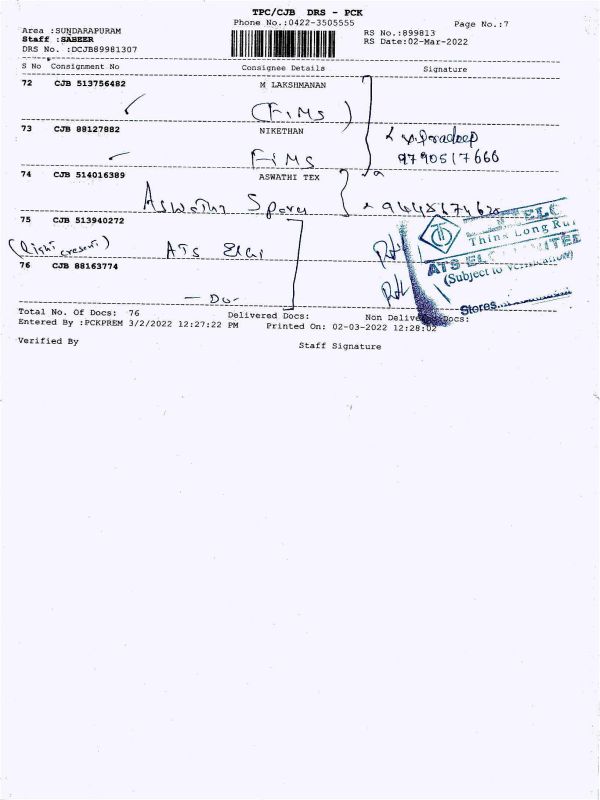 TPC/CJB DRS - PCK
Phone No.:0422-3505555
Page No.:7
Area :SUNDARAPURAM
RS No.:899813
Staff :SABEER
RS Date:02-Mar-2022
DRS No. :DCJB89981307
S No Consignment No Consignee Details Signature
72 CJB 513756482 M LAKSHMANAN
(FiMs)
73 CJB 88127882 NIKETHAN
FiMs
9790517666
74 CJB 514016389 ASWATHI TEX
75 CJB 513940272
ATS
Think Long Run
ATS ELC
(Subject to Verification)
76 CJB 88163774
- Do -
Stores
Total No. Of Docs: 76 Delivered Docs: Non Delivered Docs:
Entered By :PCKPREM 3/2/2022 12:27:22 PM Printed On: 02-03-2022 12:28:02
Verified By Staff Signature